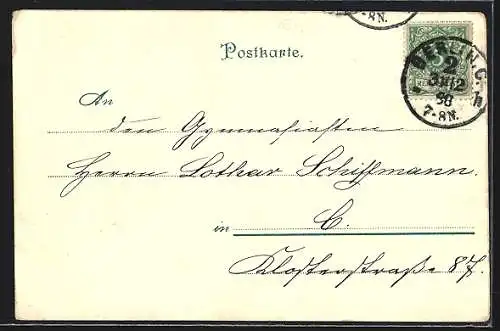 -8N.
Postkarte.
BERLIN. C.
2
98
7-8N.
h
An
den Gymnasiasten
Herrn Lothar Schiffmann.
in C.
Klosterstraße 87.